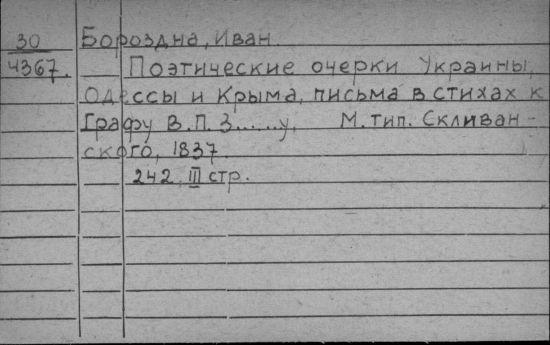 30 Бороздна, Иван.
4367. Поэтические очерки Украины,
Одессы и Крыма, письма в стихах к
Графу В.П. З......у. М. тип. Селиван-
ского, 1837.
242, III стр.